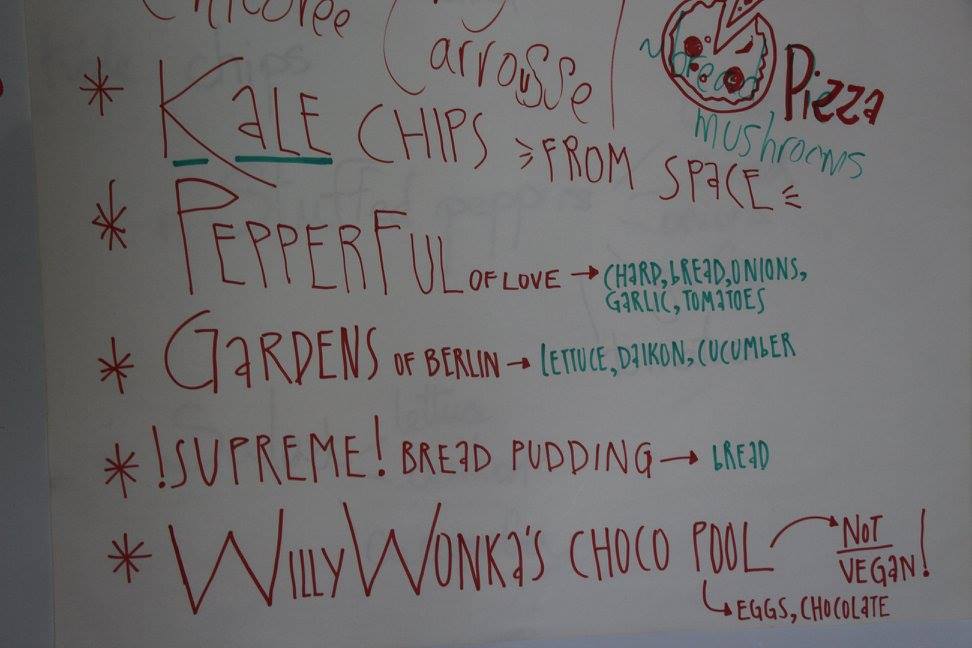 Carrousse
Pizza
bread
mushrooms
* KALE CHIPS FROM SPACE
* PEPPERFUL OF LOVE → CHARD, BREAD, ONIONS,
GARLIC, TOMATOES
* GARDENS OF BERLIN → LETTUCE, DAIKON, CUCUMBER
* !SUPREME! BREAD PUDDING → BREAD
* WILLY WONKA'S CHOCO POOL → NOT
VEGAN!
→ EGGS, CHOCOLATE